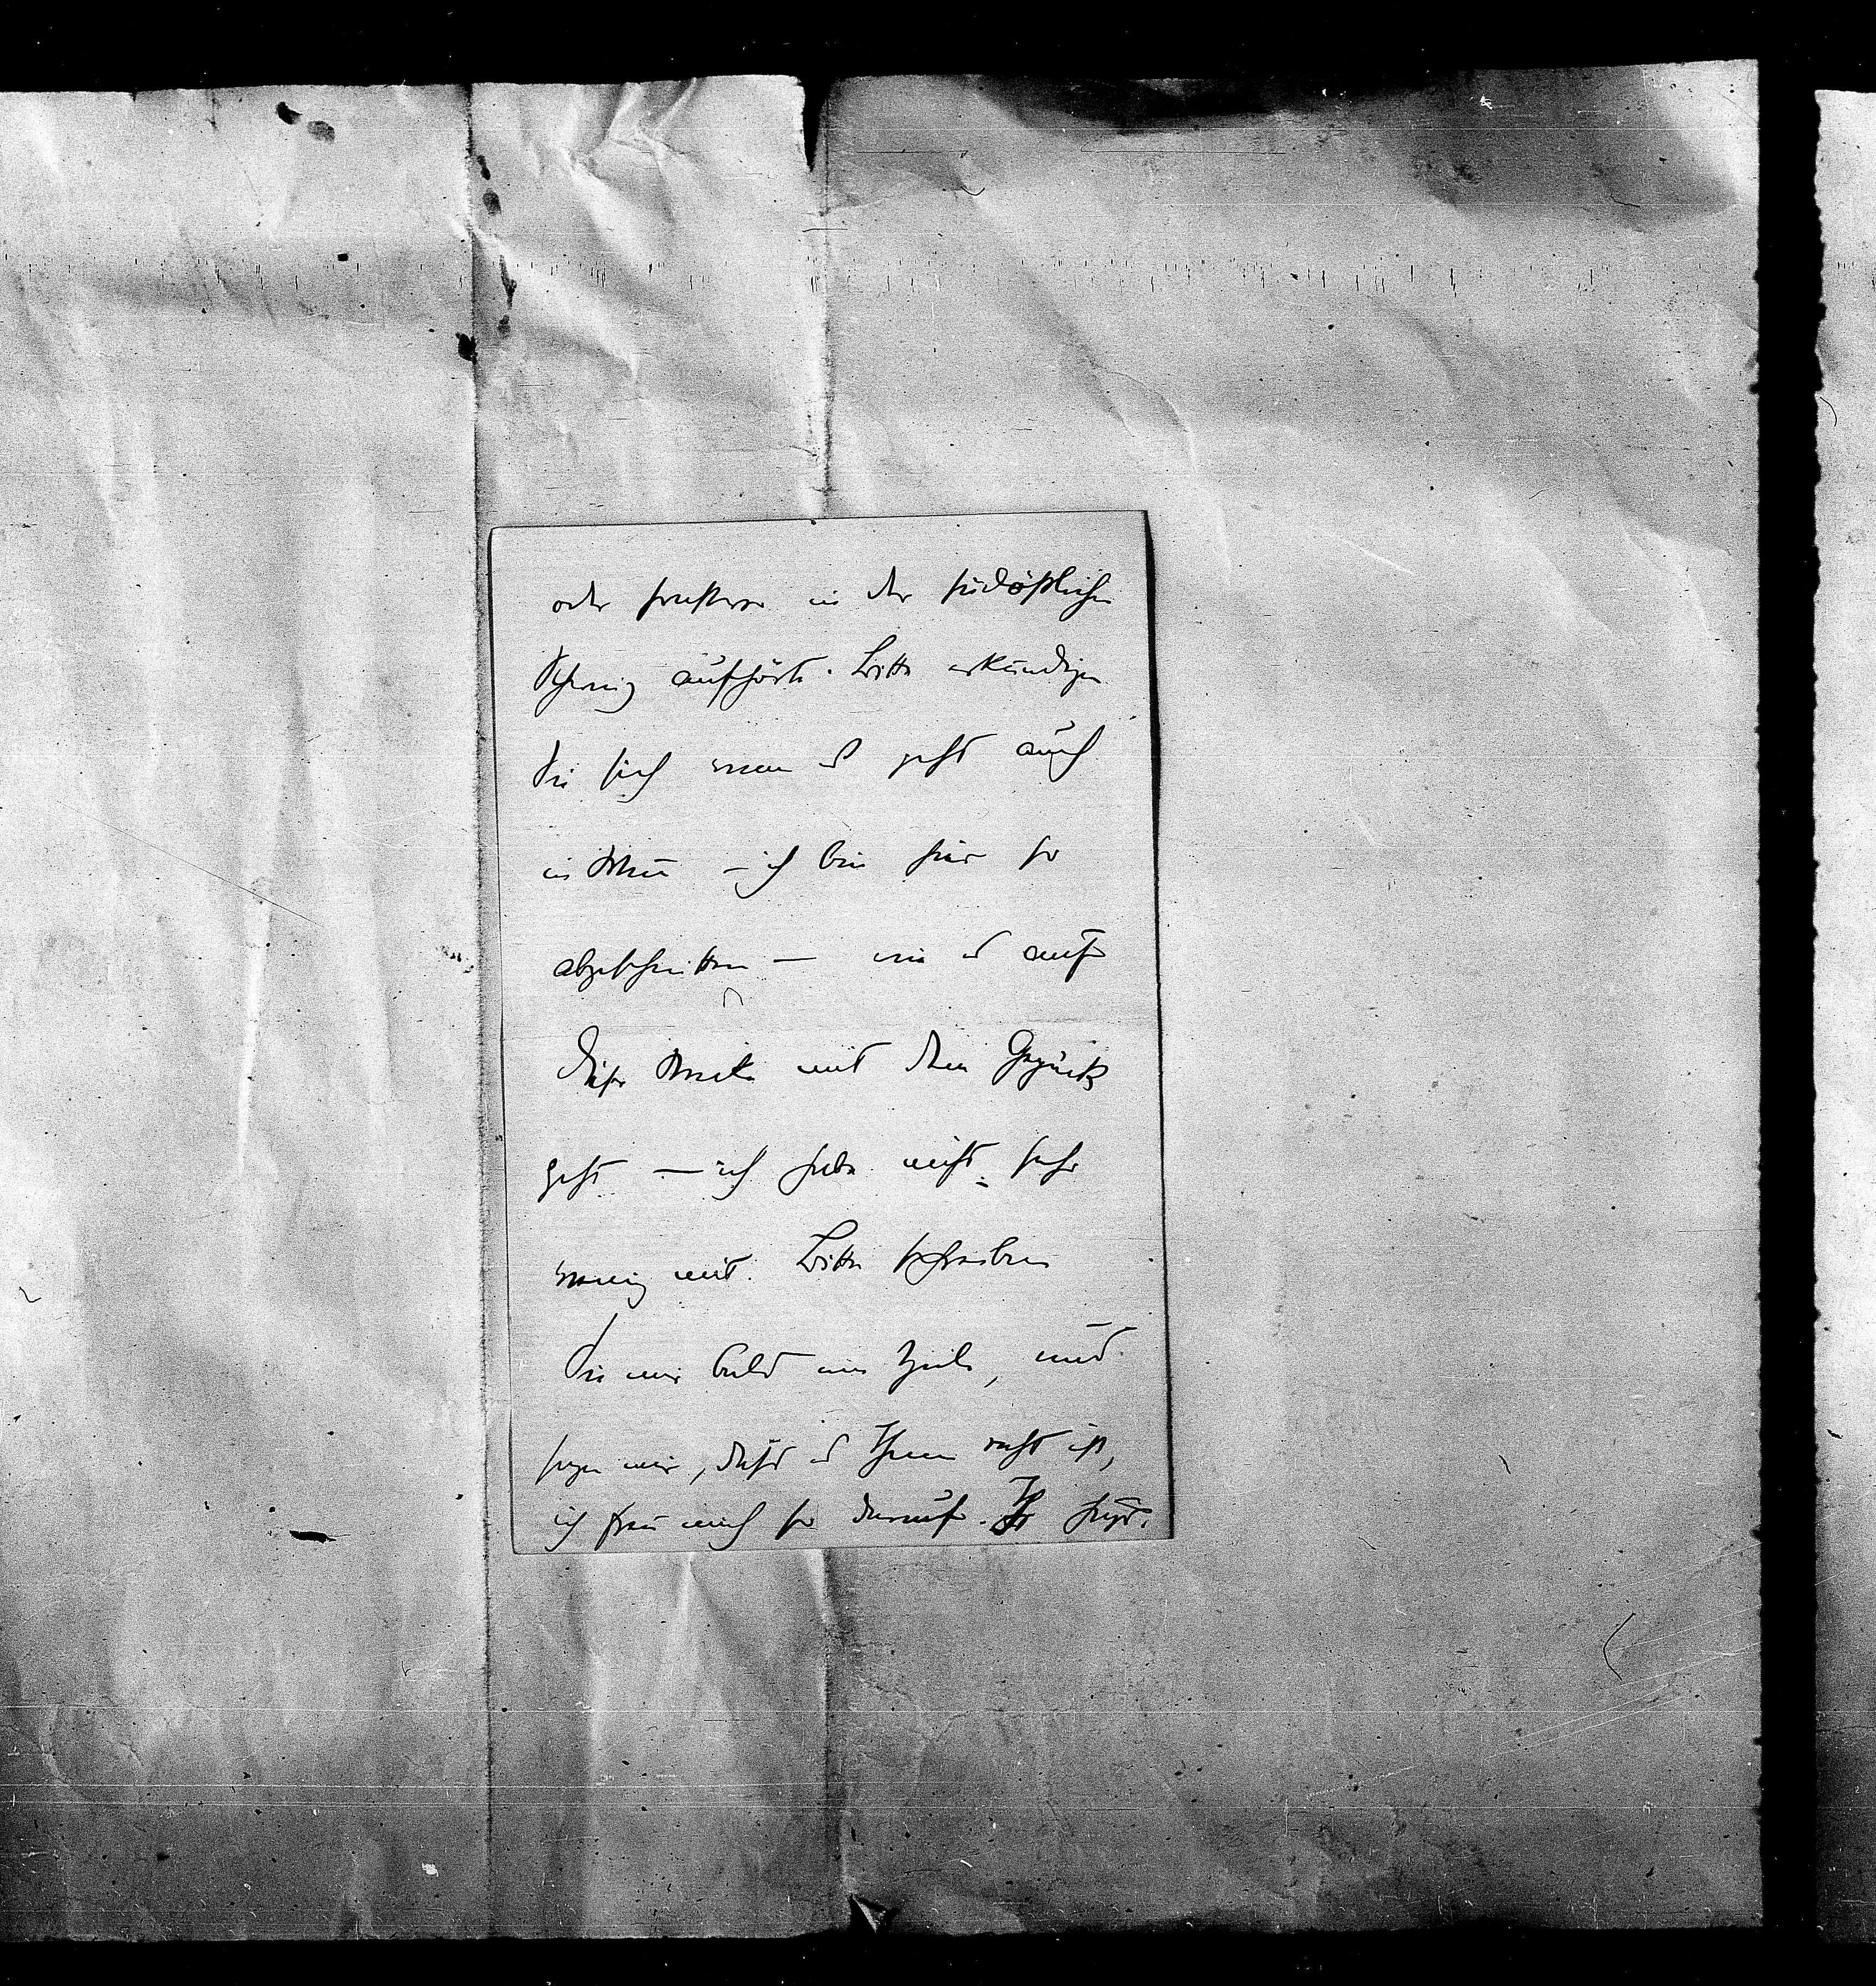 oder sonstwo in der südöstlichen
Schweiz aufhörte. Bitte erkundigen
Sie sich wenn es geht auch
in Wien – ich bin hier so
abgeschnitten – wie es auf
diese Weise mit dem Gepäck
geht – ich habe nicht sehr
wenig mit. Bitte schreiben
Sie mir bald eine Zeile, und
sagen mir, dass es Ihnen recht ist,
ich freu mich so darauf. Ihr